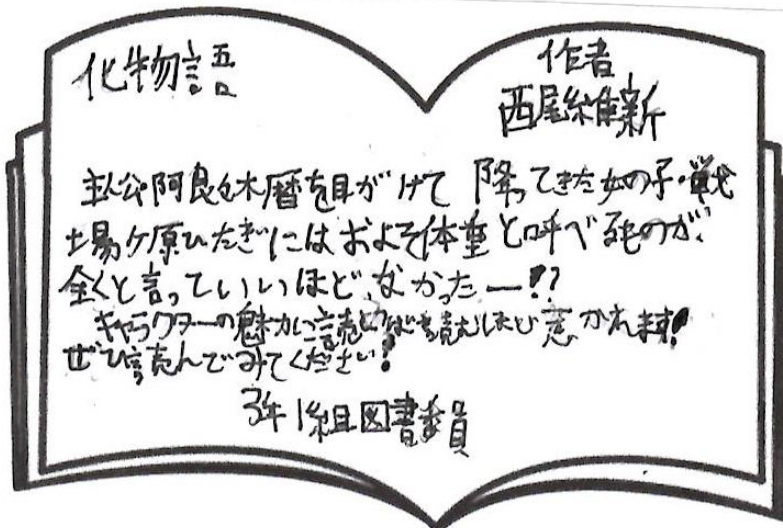 化物語
作者
西尾維新
主人公・阿良々木暦を目がけて降ってきた女の子・戦
場ヶ原ひたぎにはおよそ体重と呼べるものが、
全くと言っていいほど、なかった―!?
キャラクターの魅力に読めば読むほど惹かれます!
ぜひ読んでみてください!
3年1組図書委員